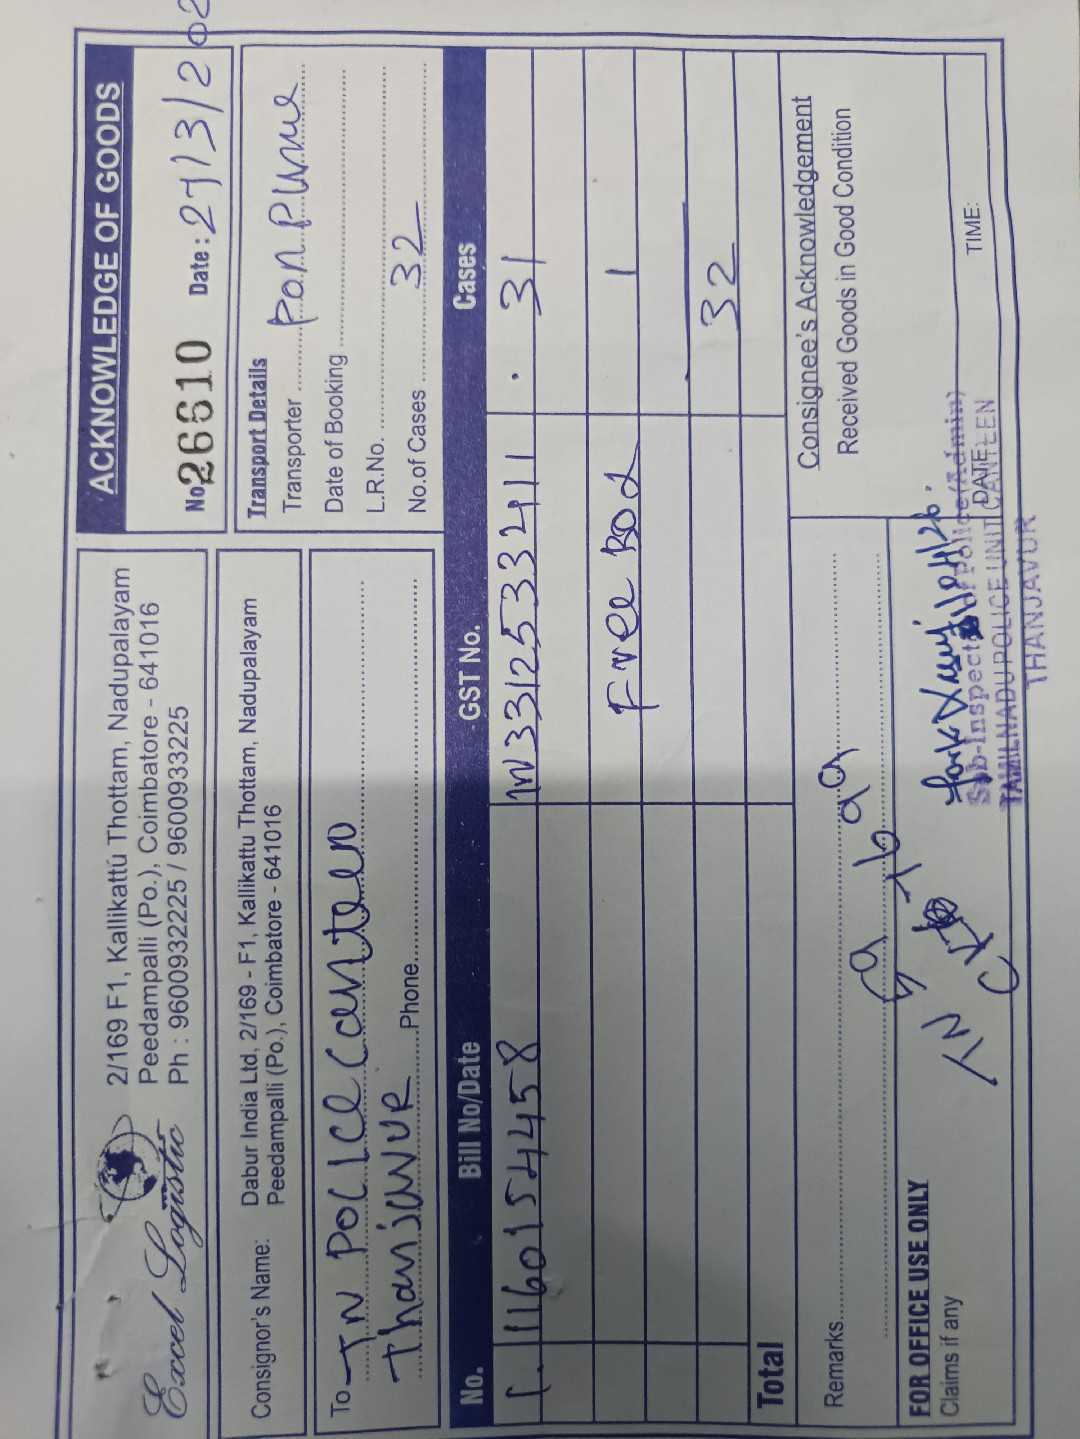 Excel Logistic
2/169 F1, Kallikattu Thottam, Nadupalayam
Peedampalli (Po.), Coimbatore - 641016
Ph : 9600932225 / 9600933225
ACKNOWLEDGE OF GOODS
No. 26610 Date: 27/3/202
Consignor's Name: Dabur India Ltd, 2/169 - F1, Kallikattu Thottam, Nadupalayam
Peedampalli (Po.), Coimbatore - 641016
To TN Police Canteen
Thanjavur
Phone
Transport Details
Transporter
Date of Booking
L.R.No.
No.of Cases 32
No. Bill No/Date GST No. Cases
1. 1160154458 IN3312533411 . 31
Free Box 1
32
Total
Remarks
FOR OFFICE USE ONLY
Claims if any
Consignee's Acknowledgement
Received Goods in Good Condition
DATE: TIME:
Sub-Inspector of Police (Admin)
TAMILNADU POLICE UNIT CANTEEN
THANJAVUR